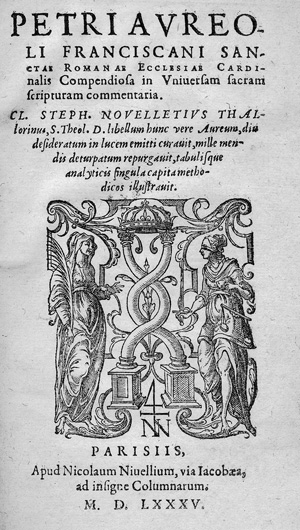 PETRI AVREO-
LI FRANCISCANI SAN-
CTAE ROMANAE ECCLESIAE CARDI-
nalis Compendiosa in Vniuersam sacram
scripturam commentaria.
CL. STEPH. NOVELLETIVS THAL-
lorinus, S. Theol. D. libellum hunc vere Aureum, diu
desideratum in lucem emitti curauit, mille men-
dis deturpatum repurgauit, tabulisque
analyticis singula capita metho-
dicos illustrauit.
NN
PARISIIS,
Apud Nicolaum Niuellium, via Iacobæa,
ad insigne Columnarum.
M. D. LXXXV.